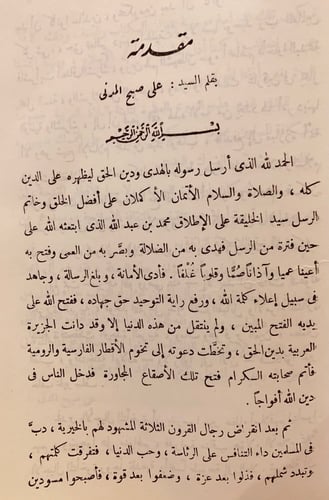 مقدمة
بقلم السيد : على صبح المدنى
بسم الله الرحمن الرحيم
الحمد لله الذى أرسل رسوله بالهدى ودين الحق ليظهره على الدين
كله ، والصلاة والسلام الأتمان الأكملان على أفضل الخلق وخاتم
الرسل سيد الخليقة على الإطلاق محمد بن عبد الله الذى ابتعثه الله على
حين فترة من الرسل فهدى به من الضلالة وبصّر به من العمى وفتح به
أعينا عميا وآذانا صُمًّا وقلوبا غُلفا . فأدى الأمانة ، وبلغ الرسالة ، وجاهد
فى سبيل إعلاء كلمة الله ، ورفع راية التوحيد حق جهاده ، ففتح الله على
يديه الفتح المبين ، ولم ينتقل من هذه الدنيا إلا وقد دانت الجزيرة
العربية بدين الحق ، وتخطَّت دعوته إلى تخوم الأقطار الفارسية والرومية
فأتم صحابته الكرام فتح تلك الأصقاع المجاورة فدخل الناس فى
دين الله أفواجاً .
ثم بعد انقراض رجال القرون الثلاثة المشهود لهم بالخيرية ، دبَّ
فى المسلمين داء التنافس على الرئاسة ، وحب الدنيا ، فتفرقت كلمتهم ،
وتبدد شملهم ، فذلوا بعد عزة ، وضعفوا بعد قوة ، فأصبحوا مسودين